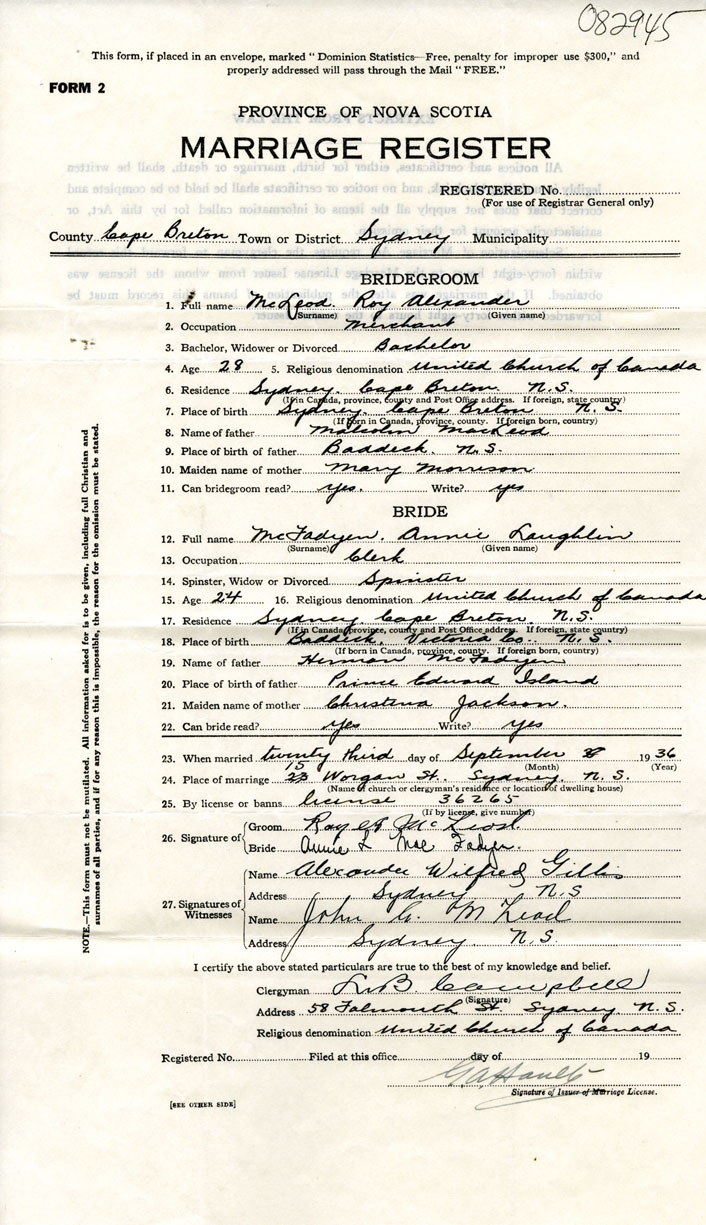 082945
This form, if placed in an envelope, marked "Dominion Statistics—Free, penalty for improper use $300," and
properly addressed will pass through the Mail "FREE."
FORM 2
PROVINCE OF NOVA SCOTIA
MARRIAGE REGISTER
REGISTERED No.
(For use of Registrar General only)
County Cape Breton Town or District Sydney Municipality
BRIDEGROOM
1. Full name McLeod. Roy Alexander
(Surname) (Given name)
2. Occupation Merchant
3. Bachelor, Widower or Divorced Bachelor
4. Age 28 5. Religious denomination United Church of Canada
6. Residence Sydney. Cape Breton. N.S.
(If in Canada, province, county and Post Office address. If foreign, state country)
7. Place of birth Sydney. Cape Breton N.S.
(If born in Canada, province, county. If foreign born, country)
8. Name of father Malcolm MacLeod
9. Place of birth of father Baddeck. N.S.
10. Maiden name of mother Mary Morrison
11. Can bridegroom read? yes. Write? yes
BRIDE
12. Full name McFadyen. Annie Laughlin
(Surname) (Given name)
13. Occupation Clerk
14. Spinster, Widow or Divorced Spinster
15. Age 24 16. Religious denomination United Church of Canada
17. Residence Sydney Cape Breton. N.S.
(If in Canada, province, county and Post Office address. If foreign, state country)
18. Place of birth Baddeck. Victoria Co. N.S.
(If born in Canada, province, county. If foreign born, country)
19. Name of father Herman McFadyen
20. Place of birth of father Prince Edward Island
21. Maiden name of mother Christena Jackson.
22. Can bride read? yes Write? yes
23. When married twenty third day of September 1936
(Month) (Year)
15
24. Place of marriage 23 Worgan St. Sydney. N.S.
(Name of church or clergyman's residence or location of dwelling house)
25. By license or banns license 36265
(If by license, give number)
26. Signature of Groom Roy A McLeod.
Bride Annie L Mac Fadyen.
27. Signatures of Witnesses
Name Alexander Wilfred Gillis
Address Sydney N.S
Name John C. McLeod
Address Sydney N.S.
I certify the above stated particulars are true to the best of my knowledge and belief.
Clergyman Campbell
(Signature)
Address 58 Falmouth St. Sydney N.S.
Religious denomination United Church of Canada
Registered No. Filed at this office day of 19
Signature of Issuer of Marriage License.
[SEE OTHER SIDE]
NOTE.—This form must not be mutilated. All information asked for is to be given, including full Christian and
surnames of all parties, and if for any reason this is impossible, the reason for the omission must be stated.